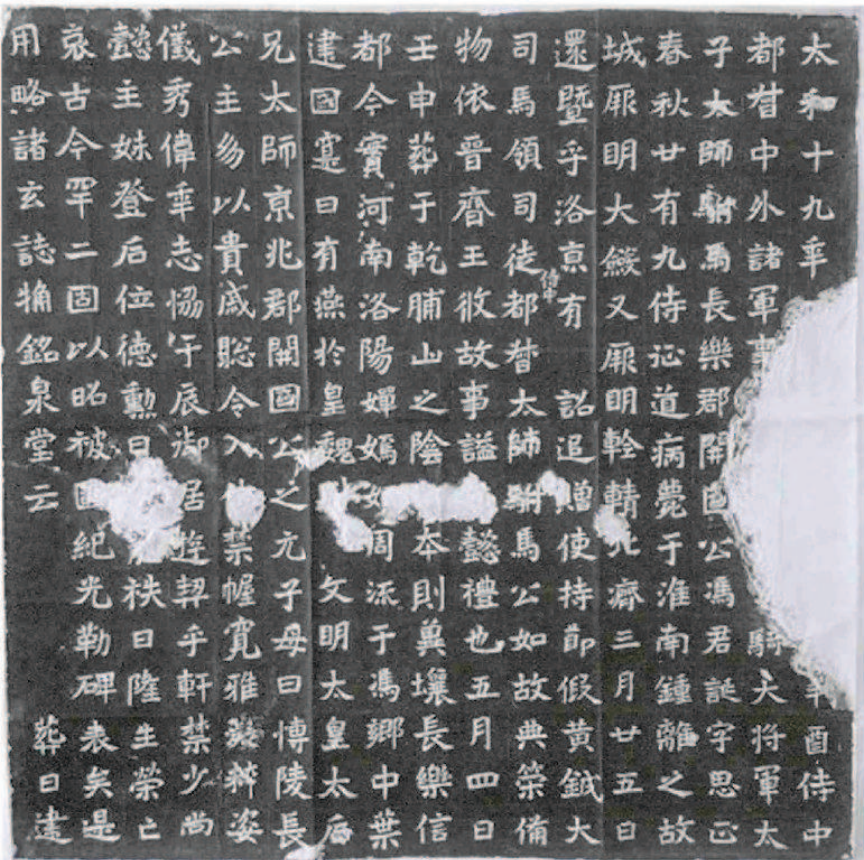 太和十九年 酉侍中
都督中外諸軍事 騎大將軍太
子太師駙馬長樂郡開國公馮君誕字思正
春秋廿有九侍 道病薨于淮南鍾離之故
城厥明大斂又厥明輇輤北 三月廿五日
還暨乎洛京有 詔追贈使持節假黃鉞大
司馬領司徒侍中都督太師駙馬公如故典策備
物依晉齊王攸故事謚 懿禮也五月四日
壬申葬于乾脯山之陰 本則冀壤長樂信
都今實河南洛陽嬋嫣 周流于馮鄉中葉
建國寔曰有燕於皇魏 文明太皇太后
兄太師京兆郡開國公之元子母曰博陵長
公主多以貴戚聰令入 禁幄寬雅凝粹姿
儀秀偉年志協于辰御居遊契乎軒禁少尚
懿主妹登后位德勳日 秩日隆生榮亡
哀古今罕二固以昭被國紀光勒碑表矣是
用略諸玄誌 銘泉堂云 葬日建